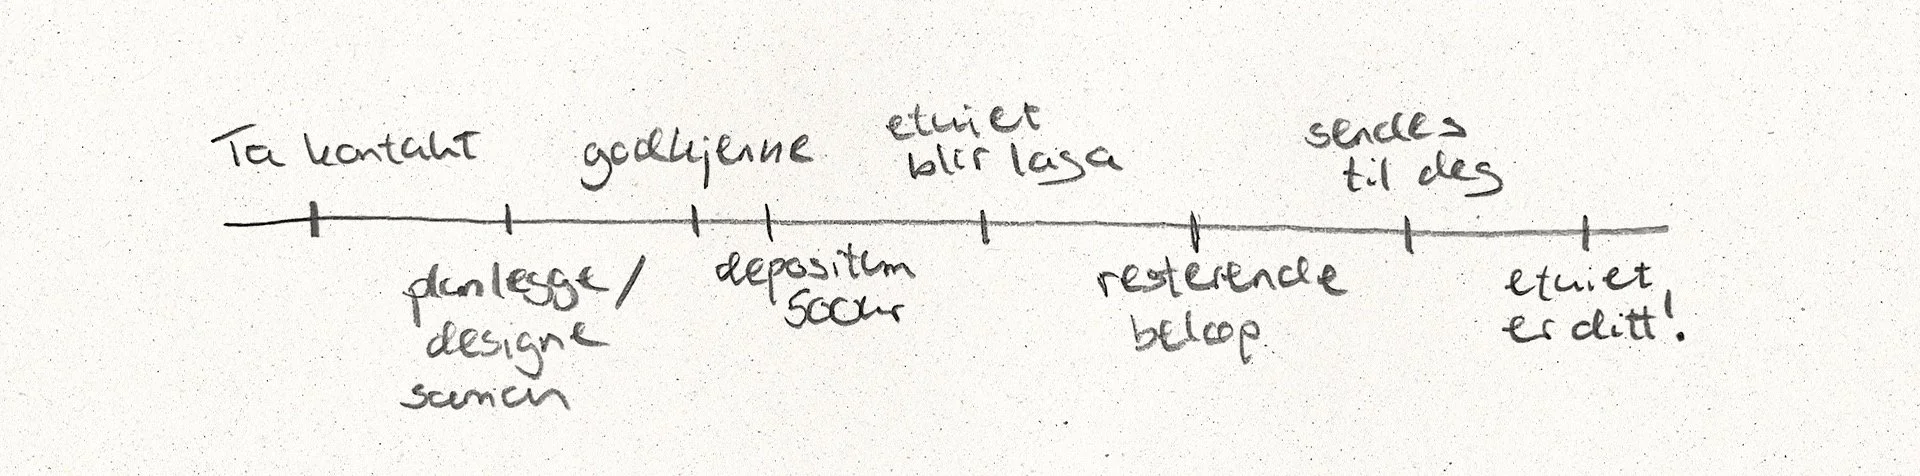 Ta kontakt
planlegge/
designe
samen
godkjenne
depositum
500kr
etuiet
blir laga
resterende
beloop
sendes
til deg
etuiet
er ditt!